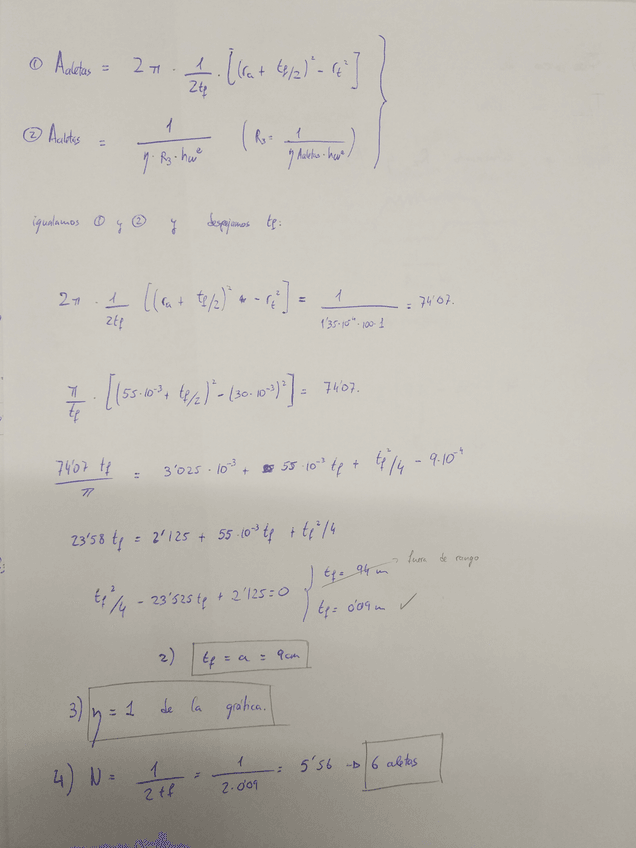 ① Aaletas = 2π · 1/2tf · [(ra + tf/2)² - rt²]
② Aaletas = 1/(η · R3 · hw^e) (R3 = 1/(η Aaletas · hw^e))
igualamos ① y ② y despejamos tf:
2π · 1/2tf [(ra + tf/2)² - rt²] = 1/(1'35·10⁻⁴·100·1) = 74'07.
π/tf · [(55·10⁻³ + tf/2)² - (30·10⁻³)²] = 74'07.
74'07 tf/π = 3'025 · 10⁻³ + 55·10⁻³ tf + tf²/4 - 9·10⁻⁴
23'58 tf = 2'125 + 55·10⁻³ tf + tf²/4
tf²/4 - 23'525 tf + 2'125 = 0 } tf = 94 m = fuera de rango
tf = 0'09 m ✓
2) tf = a = 9cm
3) η = 1 de la gráfica.
4) N = 1/2tf = 1/2·0'09 = 5'56 → 6 aletas